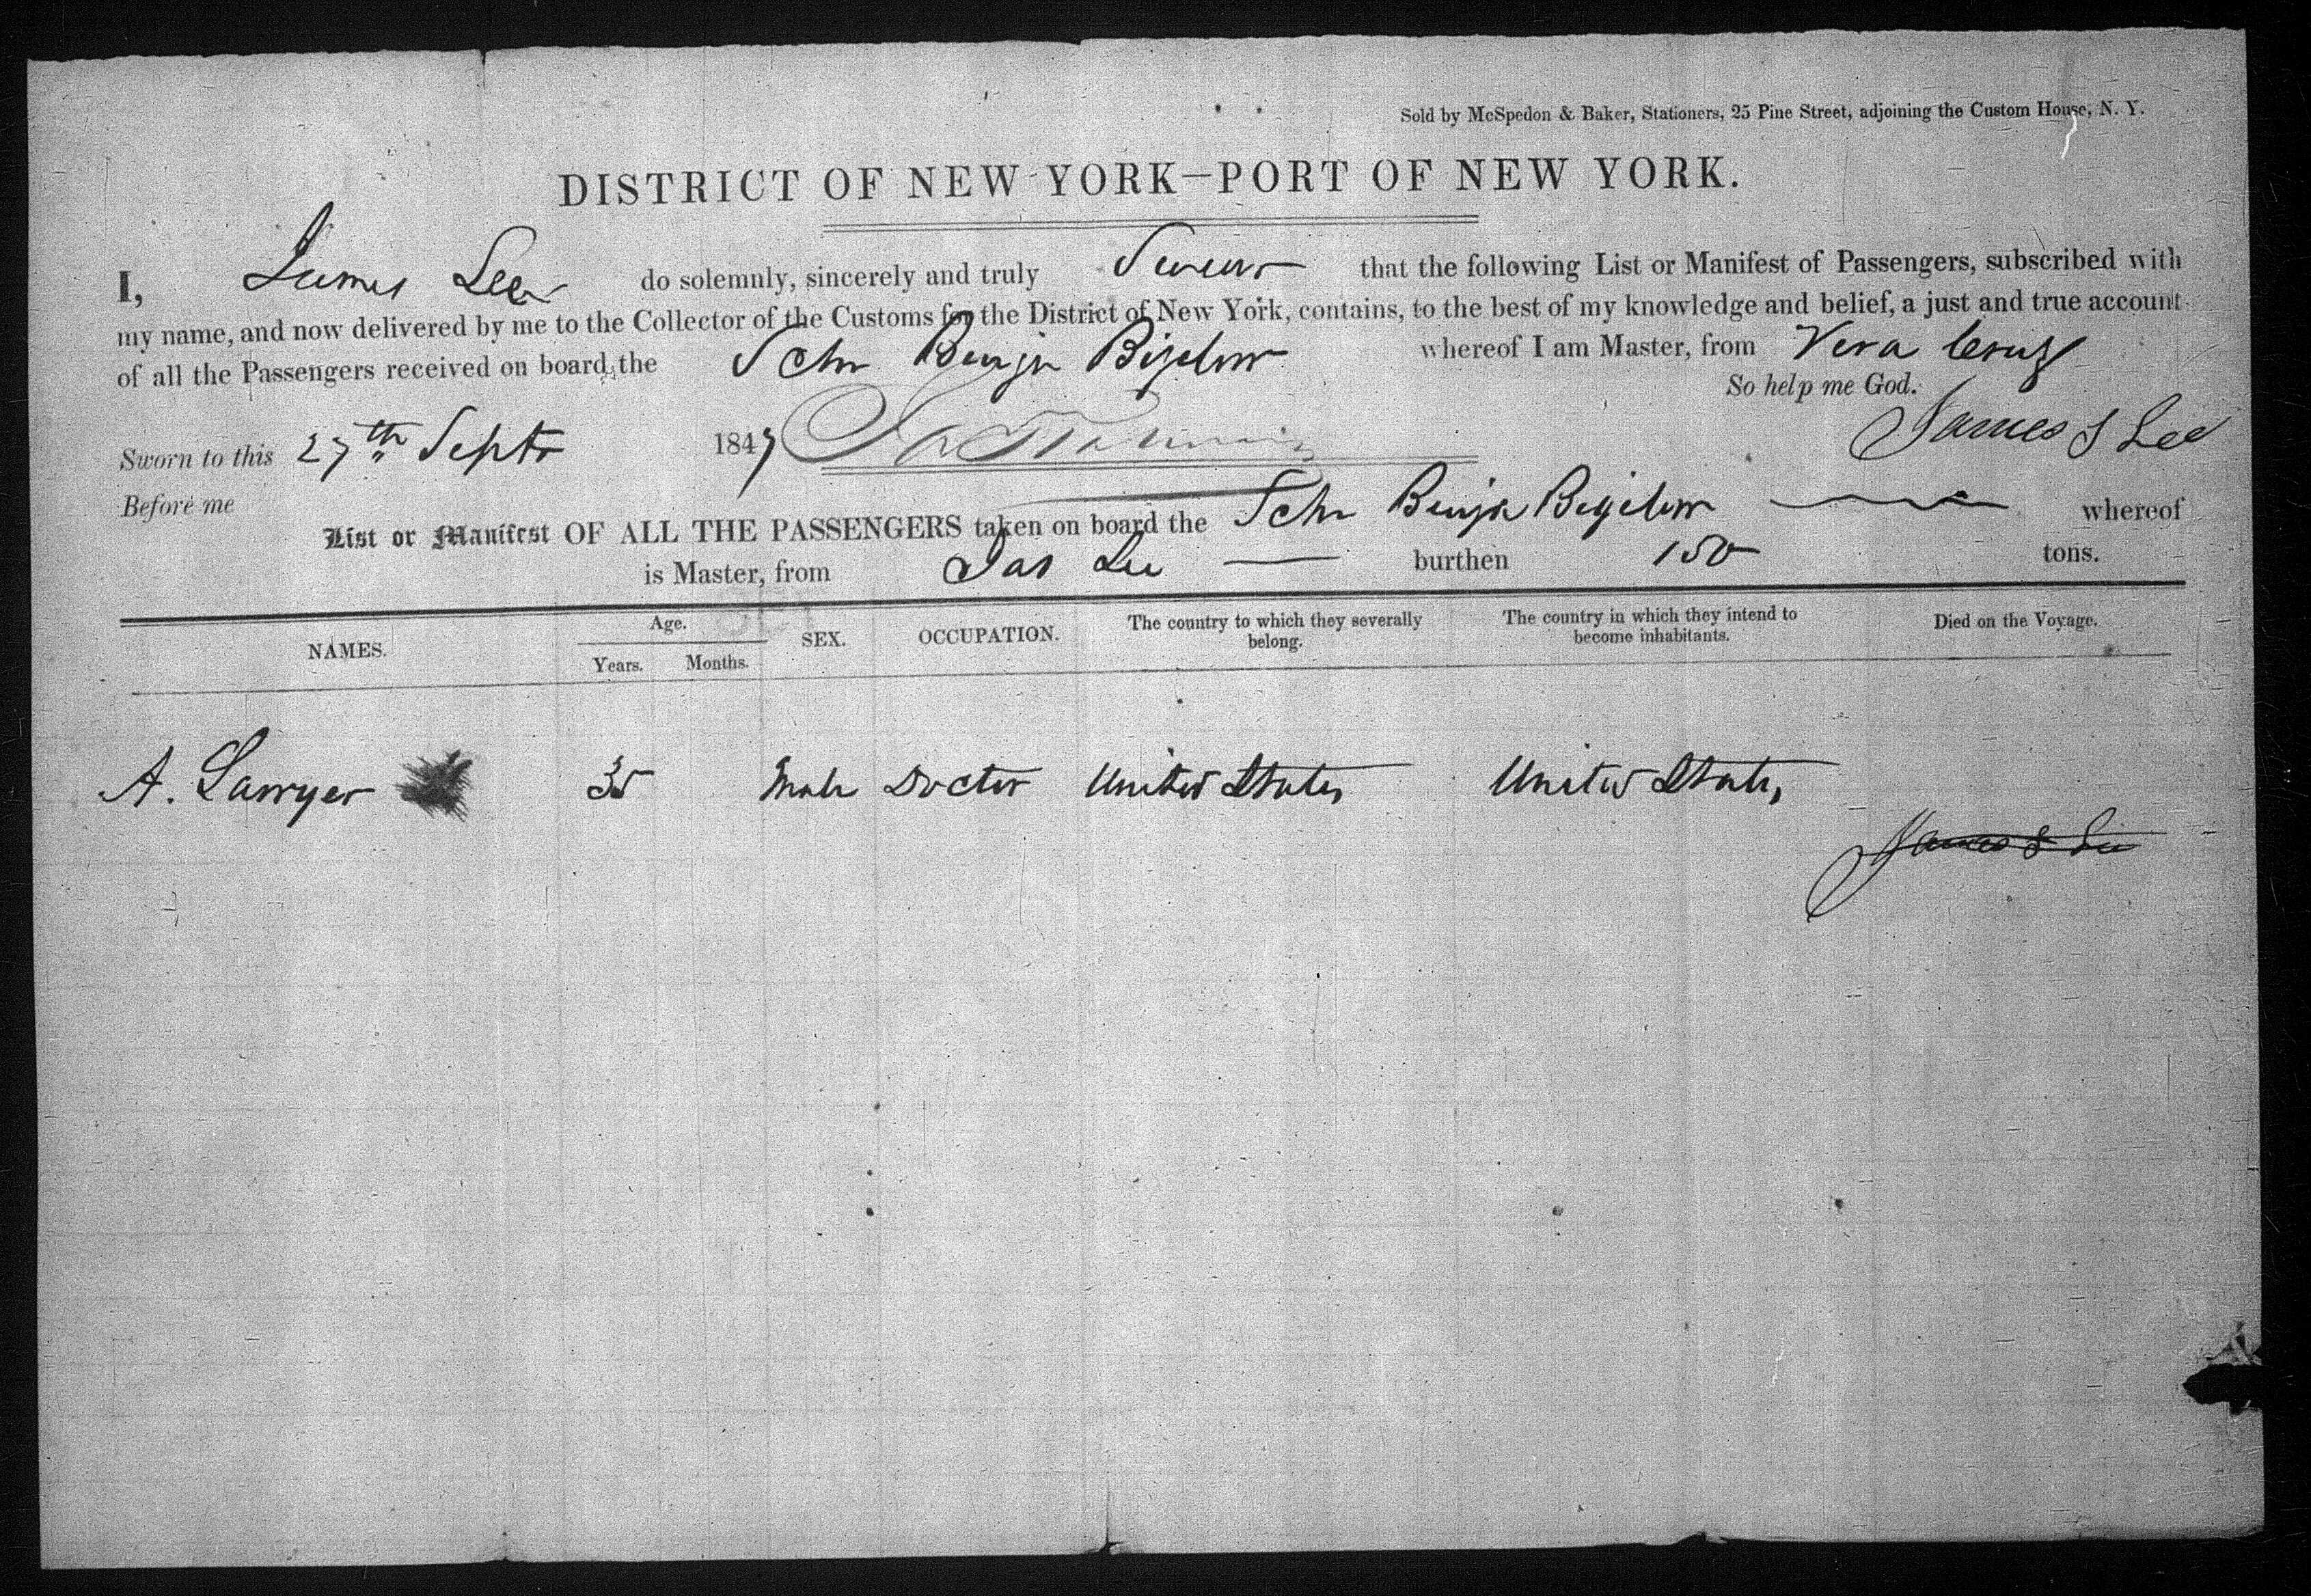 Sold by McSpedon & Baker, Stationers, 25 Pine Street, adjoining the Custom House, N. Y.
DISTRICT OF NEW YORK—PORT OF NEW YORK.
I, James Lee do solemnly, sincerely and truly Swear that the following List or Manifest of Passengers, subscribed with
my name, and now delivered by me to the Collector of the Customs for the District of New York, contains, to the best of my knowledge and belief, a just and true account
of all the Passengers received on board the Schr Benjn Bigelow whereof I am Master, from Vera Cruz
So help me God.
Sworn to this 27th Septr 1847 James S Lee
Before me
List or Manifest OF ALL THE PASSENGERS taken on board the Schr Benjn Bigelow whereof
is Master, from Jas Lee burthen 150 tons.
NAMES. Age. Years. Months. SEX. OCCUPATION. The country to which they severally belong. The country in which they intend to become inhabitants. Died on the Voyage.
A. Sawyer 35 Male Doctor United States United States,
James S Lee